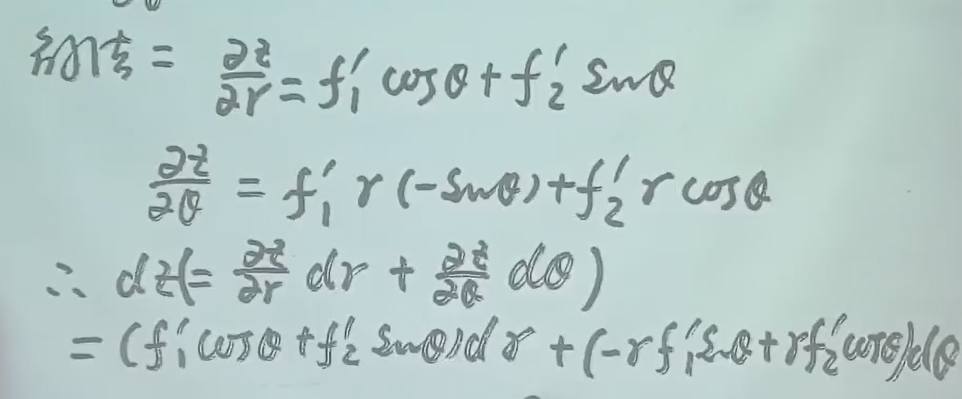 = ∂z/∂r = f₁′ cosθ + f₂′ sinθ
∂z/∂θ = f₁′ r (-sinθ) + f₂′ r cosθ
∴ dz (= ∂z/∂r dr + ∂z/∂θ dθ)
= (f₁′ cosθ + f₂′ sinθ) dr + (-r f₁′ sinθ + r f₂′ cosθ) dθ